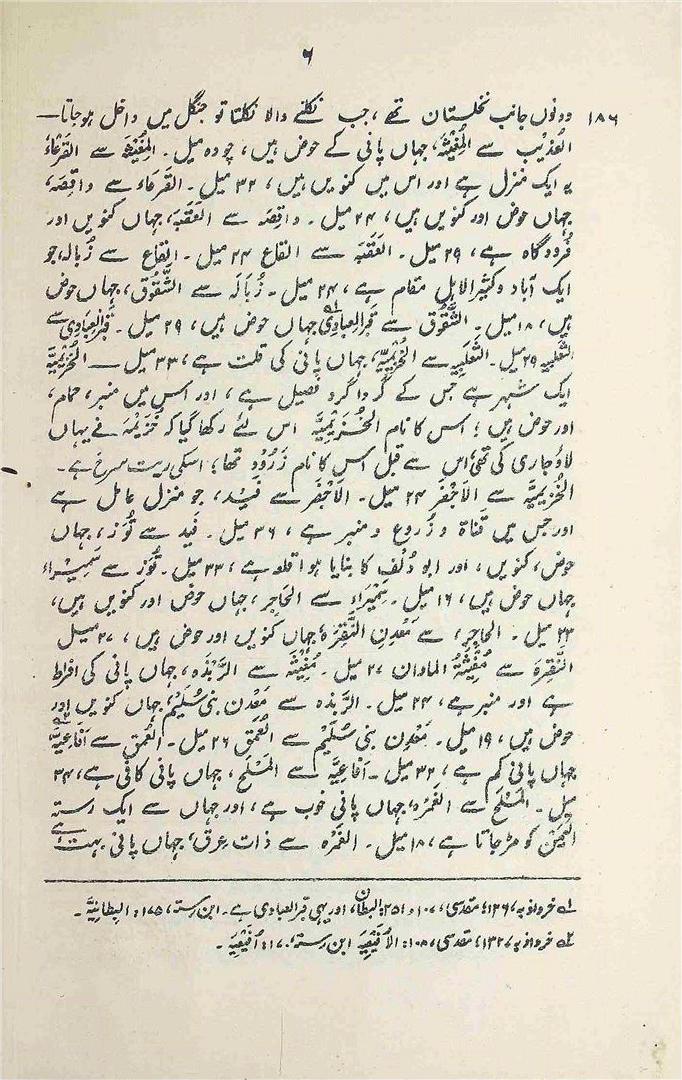 ۶
۱۸۶ دونوں جانب نخلستان تھے، جب نکلنے والا نکلتا تو جنگل میں داخل ہو جاتا—
العُذَیب سے المُغِیثَہ، جہاں پانی کے حوض ہیں، چودہ میل۔ المُغِیثَہ سے القَرعَاء
یہ ایک منزل ہے اور اس میں کنویں ہیں، ۳۲ میل۔ القرعاء سے واقِصَہ،
جہاں حوض اور کنویں ہیں، ۲۴ میل۔ واقِصَہ سے العَقَبَہ، جہاں کنویں اور
فُرودگاہ ہے، ۲۹ میل۔ العَقَبَہ سے القاع ۲۴ میل۔ القاع سے زُبالہ، جو
ایک آباد و کثیر الاہل مقام ہے، ۲۴ میل۔ زُبَالَہ سے الشُّقُوق، جہاں حوض
ہیں، ۱۸ میل۔ الشُّقُوق سے قبر العبادی لہ جہاں حوض ہیں، ۲۹ میل۔ قبر العبادی سے
الثعلبیہ ۲۹ میل۔ الثعلبیہ سے الخُزَیمِیَّہ، جہاں پانی کی قلت ہے، ۳۳ میل — الخُزَیمِیَّہ
ایک شہر ہے جس کے گردا گرد فصیل ہے، اور اس میں منبر، حمام،
اور حوض ہیں؛ اس کا نام الخُزَیمِیَّہ اس لئے رکھا گیا کہ خُزَیمَہ نے یہاں
لاؤ جاری کی تھی؛ اس سے قبل اس کا نام زَرُوْد تھا؛ اسکی ریت سرخ ہے۔
الخُزیمیہ سے الاَجفَر ۲۴ میل۔ الاَجفَر سے فَید، جو منزل عامل ہے
اور جس میں قناۃ و زروع و منبر ہے، ۳۶ میل۔ فید سے تُوز، جہاں
حوض، کنویں، اور ابو دُلَف کا بنایا ہوا قلعہ ہے، ۳۳ میل۔ تُوز سے سَمِیراء
جہاں حوض ہیں، ۱۶ میل۔ سَمِیرَاء سے الحَاجِر، جہاں حوض اور کنویں ہیں،
۲۳ میل۔ الحاجِر، سے مَعدِن النَّقِرَہ جہاں کنویں اور حوض ہیں، ۲۷ میل
النَّقِرَہ سے مُغِیثَۃُ الماوان ۲۷ میل۔ مُغِیثَہ سے الرَّبَذَہ، جہاں پانی کی افراط
ہے اور منبر ہے، ۲۴ میل۔ الربذہ سے مَعدِن بنی سُلَیم، جہاں کنویں اور
حوض ہیں، ۱۹ میل۔ مَعدِن بنی سُلَیم سے العُمَق ۲۶ میل۔ العُمَق سے اَفاعِیَّہ ۲ہ
جہاں پانی کم ہے، ۳۲ میل۔ اَفاعِیَّہ سے المَسلَح، جہاں پانی کافی ہے، ۳۴
میل۔ المَسلَح سے الغَمرَہ، جہاں پانی خوب ہے، اور جہاں سے ایک رستہ
الیَمَن کو مڑ جاتا ہے، ۱۸ میل۔ الغَمرَہ سے ذات عِرق، جہاں پانی بہت ہے
۱ہ خردوذبہ، ۱۲۶؛ مقدسی، ۱۰۷ و ۲۵۱: البطان، اور یہی قبر العبادی ہے۔ ابن رستہ، ۱۷۵: البطانِیَّہ۔
۲ہ خردوذبہ، ۱۳۲؛ مقدسی، ۱۰۸: الاُفَیعِیَہ ابن رستہ، ۱۷۰: اُفَیعِیَہ۔